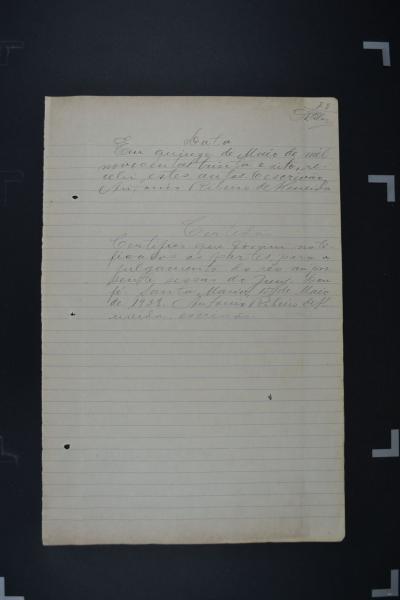 Data
Em quinze de Maio de mil
novecentos trinta e oito, re
cebi estes autos. O escrivão,
Antonio Ribeiro de Almeida
Certidão
Certifico que foram noti
ficados as partes para o
julgamento do réo na
sessão do Jury. Dou
fé. Santa Maria, de Maio
de 1938. O Antonio Ribeiro de Al
meida, escrivão